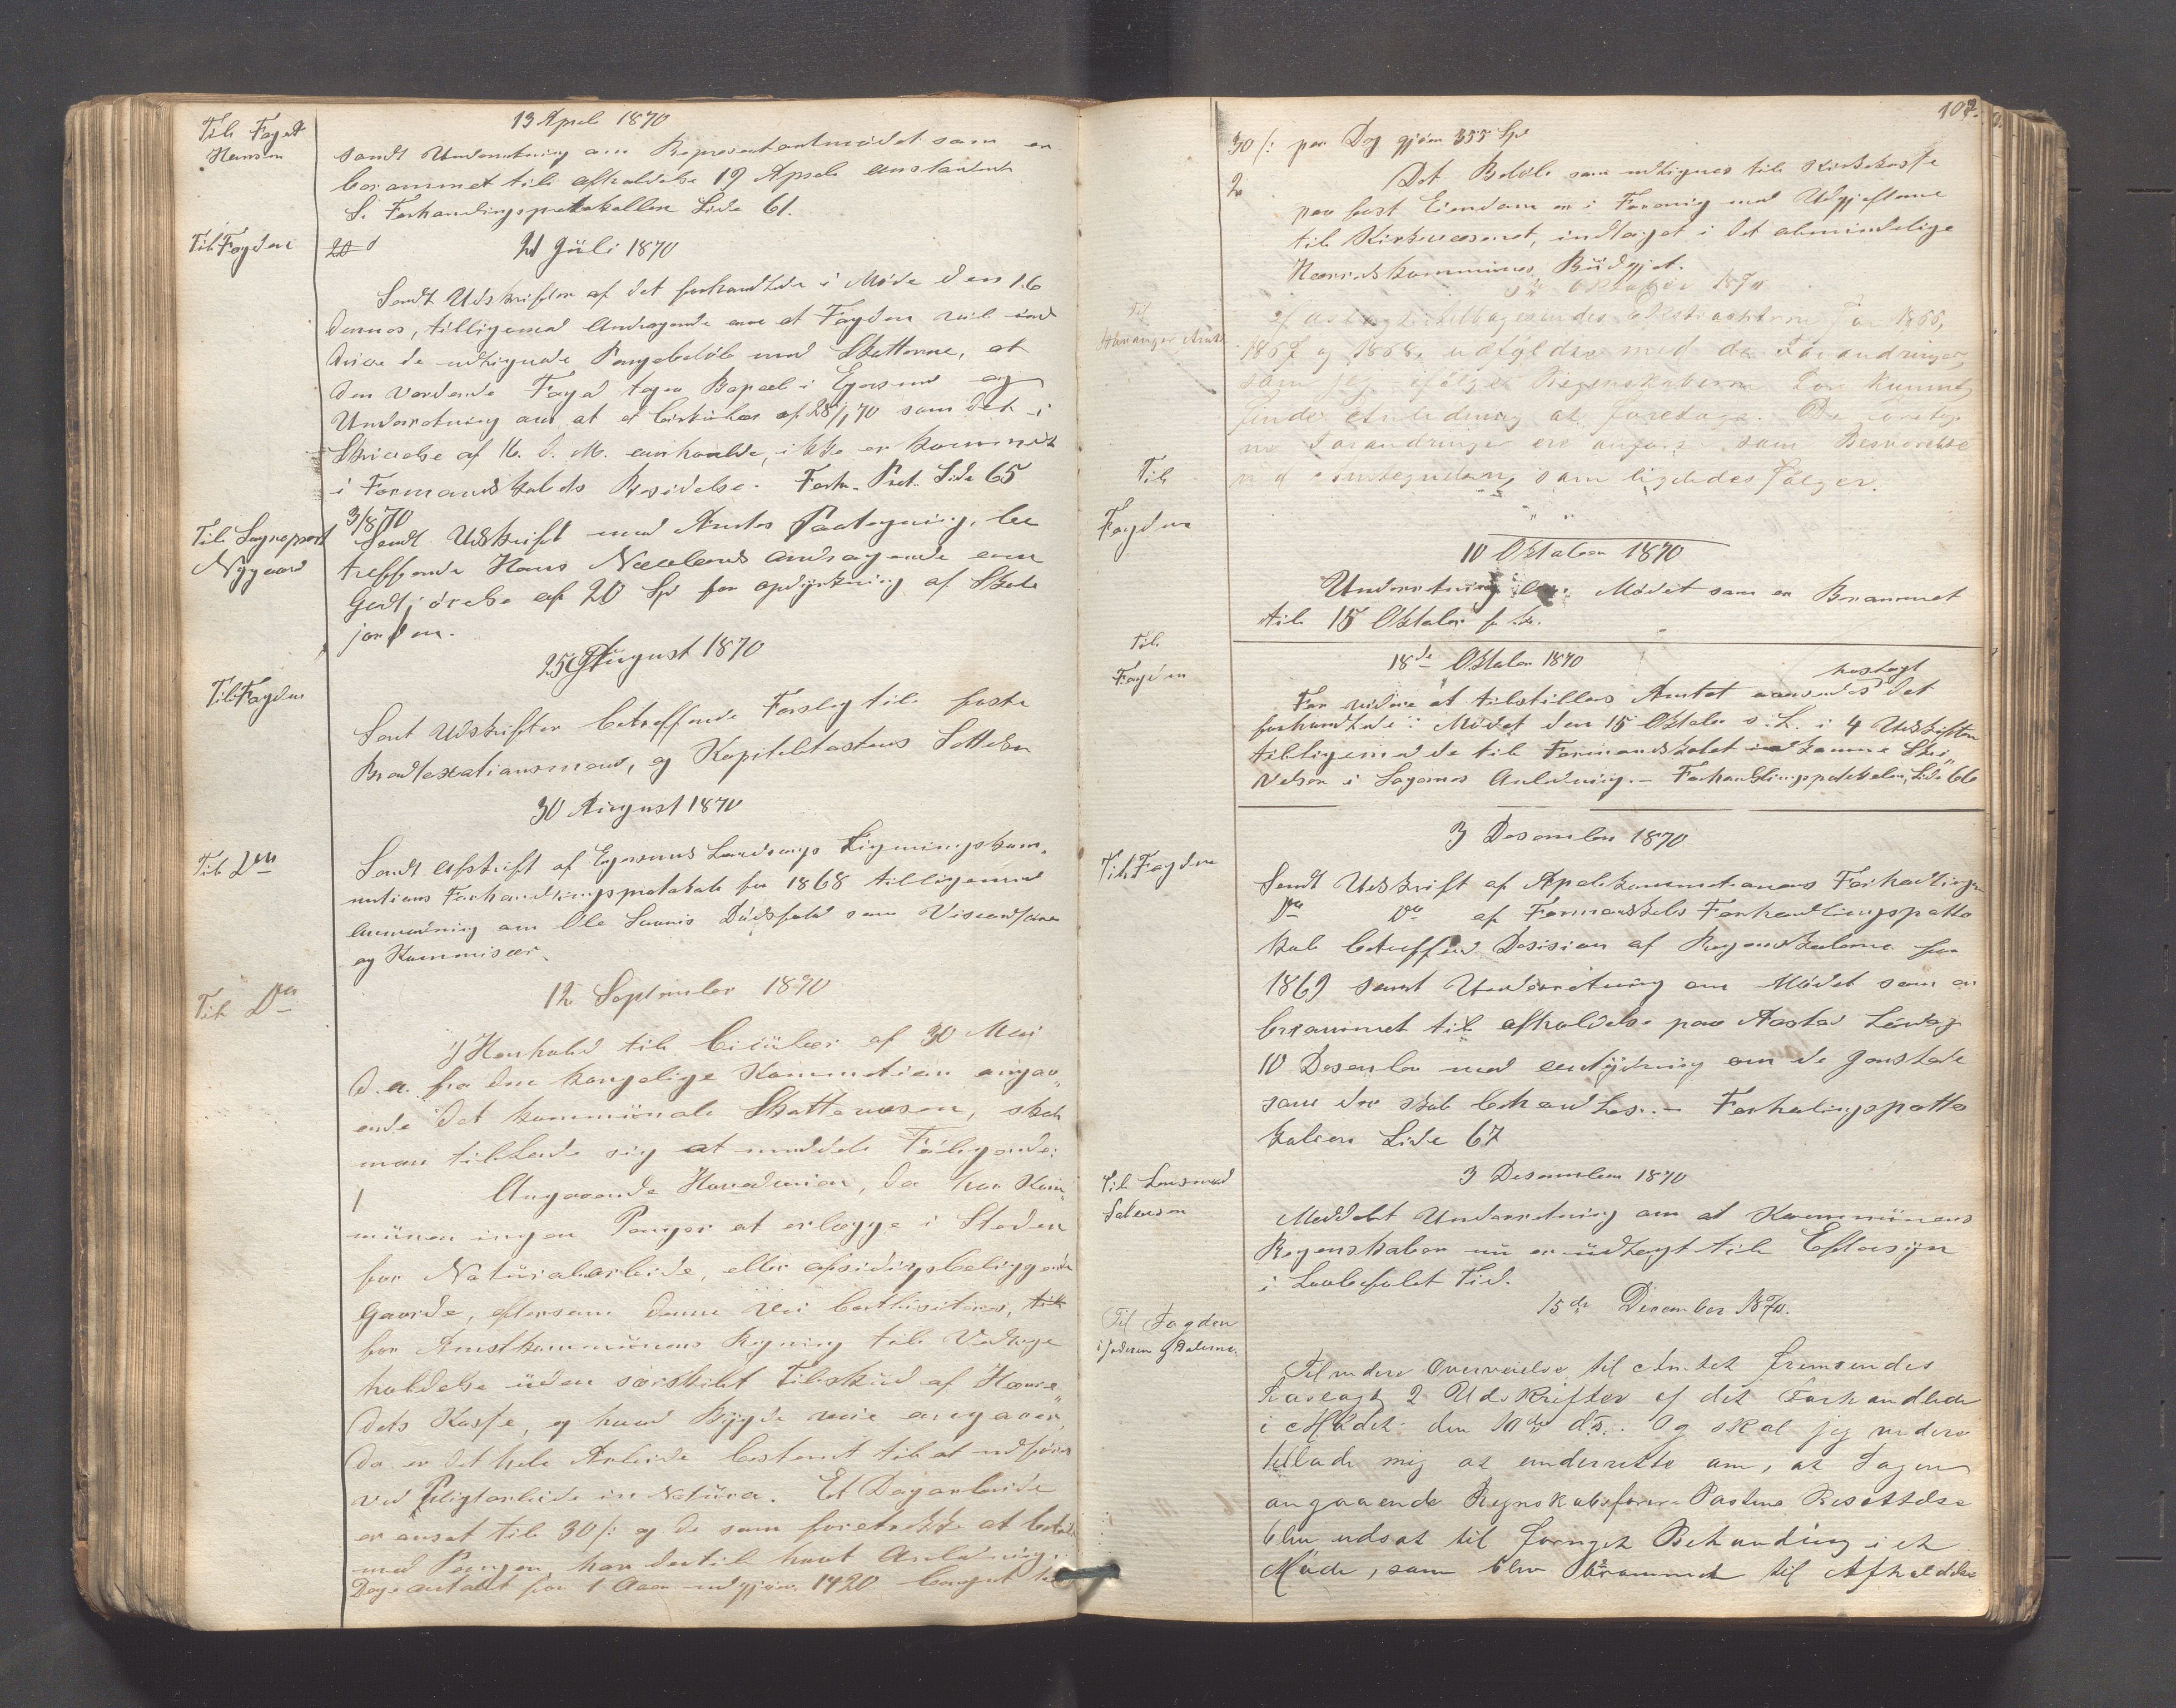 13 April 1870
Til Foged
Hansen
Sendt Underretning om Representantmødet som er
berammet til afholdelse 19 April anstundende
S. Forhandlingsprotokollen Side 61.
Til Fogden
21 Juli 1870
Sendt Udskrifter af det forhandlede i Møde den 16
dennes, tilligemed Andragende om at Fogden vil ind
drive de udlignede Pengebeløb med Skatterne, at
den værdende Foged tager Bopæl i Egersund og
Underretning om at et Cirkulær af 28/1 70 som det i
Skrivelse af 16. d. M. omhandlede, ikke er kommet
i Formandskabets Besiddelse. Forh. Prot. Side 65
3/8 70
Til Sogneprest
Nygaard
Sendt Udskrift med Amtets Paategning, be
treffende Hans Nævlands andragende om
Godtgjørelse af 20 Spd for opdyrkning af Skole
jorden.
25 August 1870
Til Fogden
Sent Udskrifter betreffende Forslag til faste
Brandtaxationsmænd, og Kapiteltaxtens Sættelse
30 August 1870
Til Den
Sendt Afskrift af Egersunds Landsogns Ligningskom-
mitions Forhandlingsprotokol for 1868 tilligemed
Anmodning om Ole Saanis Dødsfald som Viseordfører
og Kommisær.
12 September 1870
Til Dn
I Henhold til Cirkulær af 30 Mai
d. a. fra den kongelige Kommition angaa-
ende det kommunale Skattevæsen, skal
man tillade sig at meddele Følgende:
1 Angaaende Hovedveien, da har Kom-
munen ingen Penger at erlægge i Steden
for Naturalarbeide, eller afsidesbeliggende
Gaarde, eftersom denne Vei bekostes,
for Amtskommunens Regning til Vedlige
holdelse uden særskilt Tilskud af Herre-
dets Kasse, og hvad Bygde veie angaaer,
da er det hele Arbeide bestemt til at udføres
ved Pligtarbeide in Natura. Et Dagarbeide
er ansat til 30 /: og de som foretrække at betale
med Penger, har dertil havt Anledning.
Dage antallet for 1 Aar udgjør 1420 beregnet til
107.
30 /: per Dag gjør 355 Spd
2 Det Beløb som udlignes til Kirkekasse
paa fast Eiendom er i Forening med Udgifterne
til Kirkevæsenet, indtaget i det almindelige
Herredskommunes Budgjet.
Oktober 1870
Til
Stavanger Amt
Hoslagt tilbagesendes Extrakterne for 1866,
1867 og 1868, udfyldte med de Forandringer,
som jeg ifølge Regnskaberne har kunnet
finde Anledning at foretage. De foretag-
ne Forandringer ere anført som Besvarelse
som ligeledes følger.
Til
Fogden
10 Oktober 1870
Underretning om Mødet som er Berammet
til 15 Oktober
Til
Fogden
18de Oktober 1870
For videre at tilstilles Amtet oversendes hoslagt det
forhandlede i Mødet den 15 Oktober s. L. i 4 Udskrifter
tilligemed de til Formandskabet indkomne Skri-
velser i Sagernes Anledning.- Forhandlingsprotokolen, Side 66
3 Desember 1870
Til Fogden
Sendt Udskrift af Apelkommitionens Forhandlinger
Do Do af Formandskabets Forhandlingsprotto
kol betreffende Desision af Regnskaberne for
1869 samt Underretning om Mødet som er
berammet til afholdelse paa Aarstad Løverdag
10 Desember med antydning om de Gjenstande
som der skal behandles.- Forhandlingsprotto
kolen Side 67
3 Desember 1870
Til Lensmand
Salvesen
Meddelt Underretning om at Kommunens
Regenskaber nu er udlagt til Eftersyn
i Lovbefalet Tid.
15de December 1870.
Til Fogden
i Jæderen og Dalerne.
Til videre Overveielse til Amtet fremsendes
hoslagt 2 Udskrifter af det Forhandlede
i Mødet den 10de ds. Og skal jeg videre
tillade mig at underrette om, at Sagen
angaaende Regnskabsfører Postens Besættelse
blev udsat til fornyet Behandling i et
Møde, som blev berammet til Afholdelse